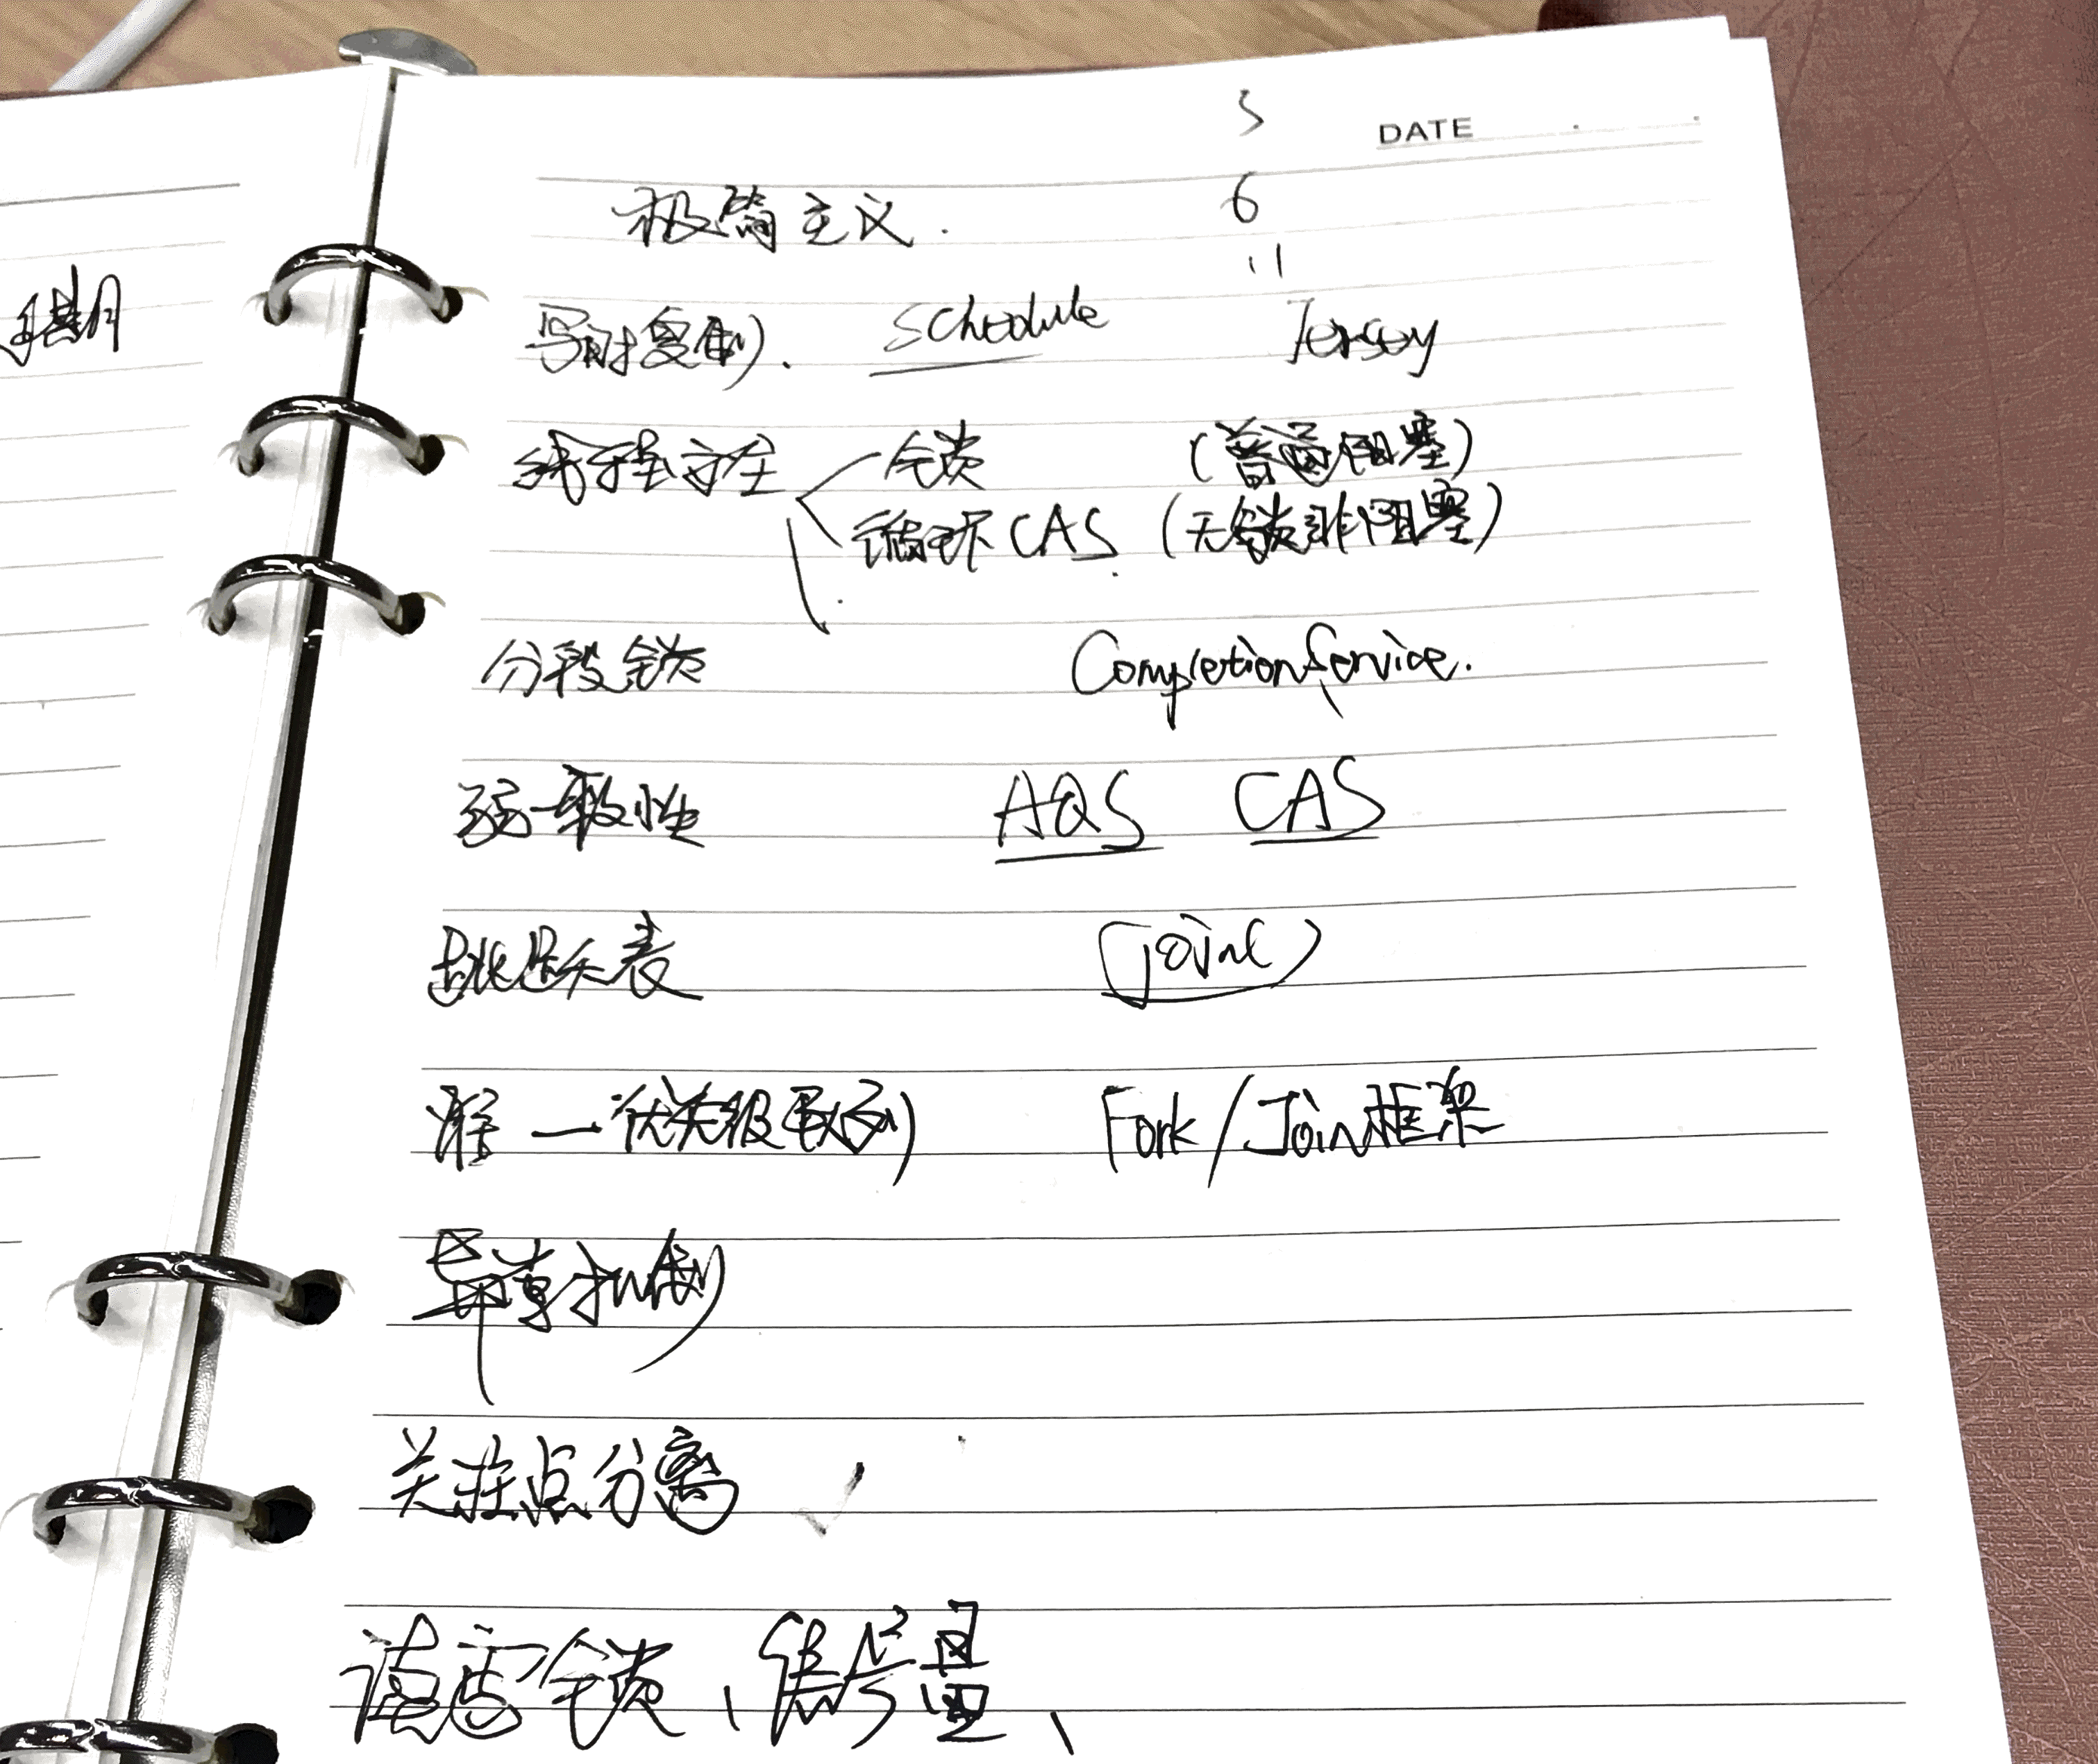 5
DATE
极简主义.
6
11
写时复制. schedule Jersey
线程安全 锁 (普通阻塞)
循环CAS (无锁非阻塞)
分段锁 CompletionService.
弱一致性 AQS CAS
跳跃表
Fork/Join框架
优先级队列
关注点分离 ✓
锁、信号量、